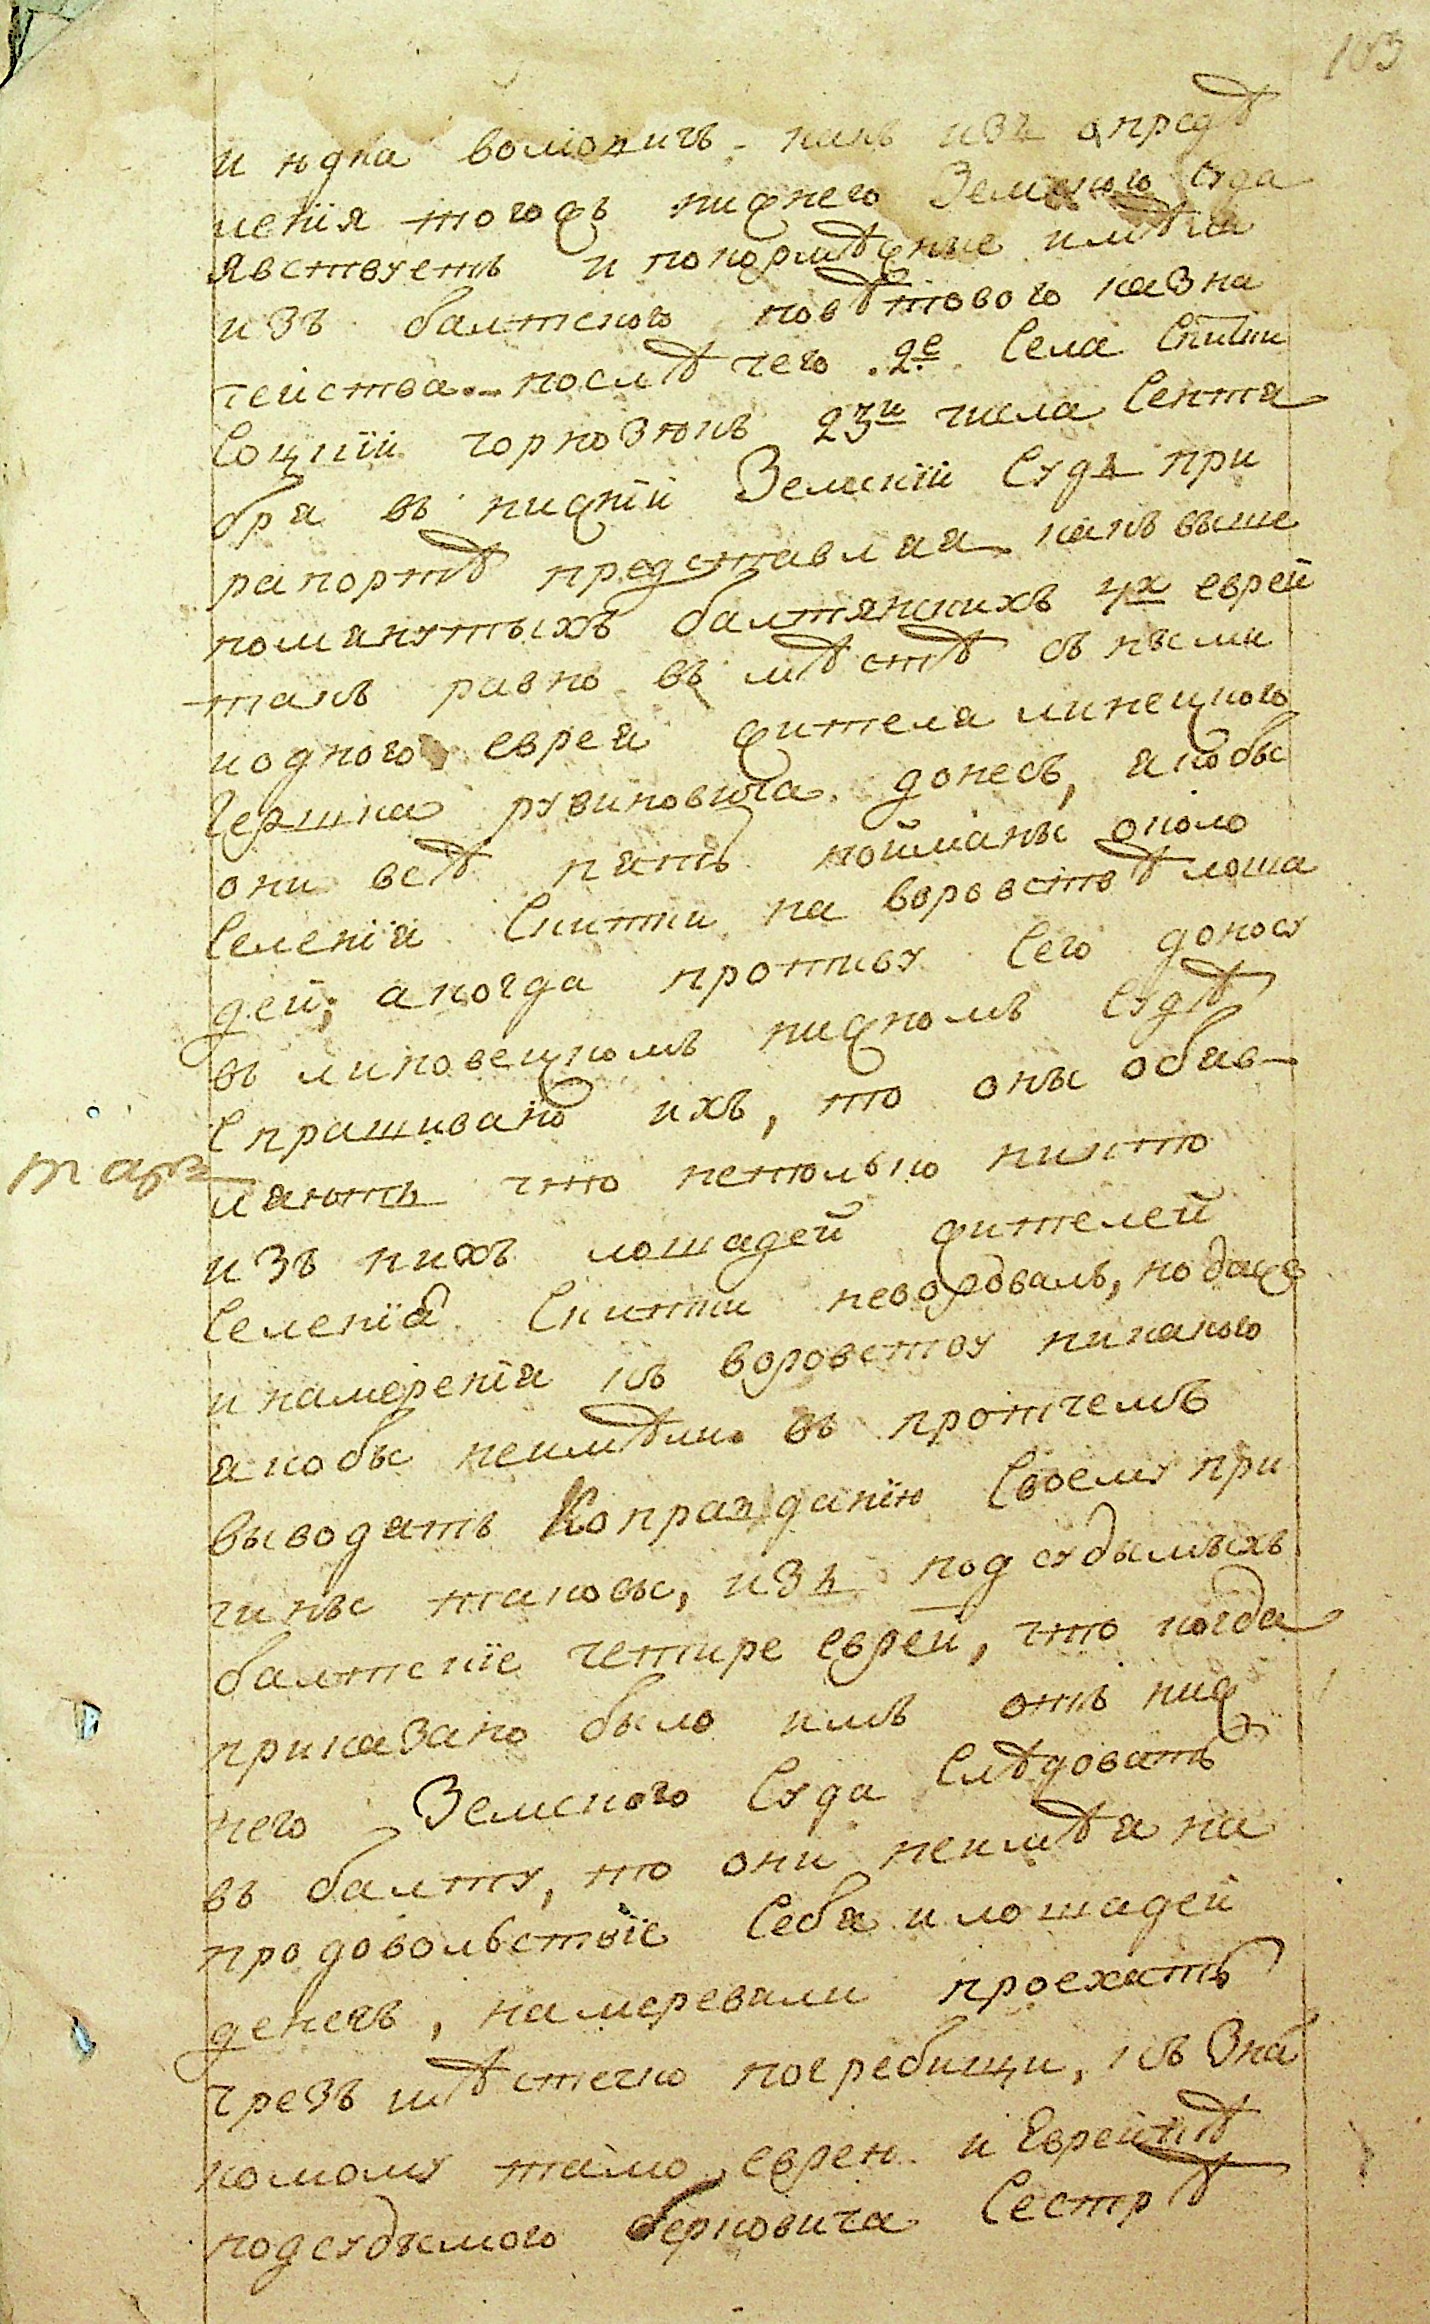 103
и юдка волювичъ. какъ изъ опредѣ
ления тогожъ нижнего Земского Суда
явствуетъ и покормѣжные имѣли
изъ балтского повѣтового казна
чейства. послѣ чего .2е. Села Скитки
Соцкїи чорнозюкъ 23и числа Сентя
бря въ нижнїй Земскїй Судъ при
рапортѣ представляя какъ выше
помянутыхъ балтянскихъ 4х еврей
такъ равно въ мѣстѣ съ ными
иодного еврея жителя линецкого
Гершка рувиновича. донесъ, якобы
они всѣ пять пойманы около
Селенїя Скитки на воровствѣ лоша
дей; акогда противу Сего доносу
въ липовецкомъ нижномъ Судѣ
Спрашивано ихъ, то оны обяв-
ляютъ что нетолько никто
изъ нихъ лошадей жителей
Селенїя Скитки неворовалъ, но даже
и намеренїя къ воровству никакого
якобы неимѣли. въ протчемъ
выводятъ Коправданїю Своему при
чины таковы, изъ подсудымыхъ
балтскїе четире еврей, что когда
приказано было имъ отъ ниж
него Земского Суда Слѣдовать
въ балту, то они неимѣя на
продовольствїе Себя и лошадей
денегъ, намеревали проехать
чрезъ мѣстечко погребищи, къ Зна
комому тамо еврею и Еврейкѣ
подсудымого берковича Сестрѣ